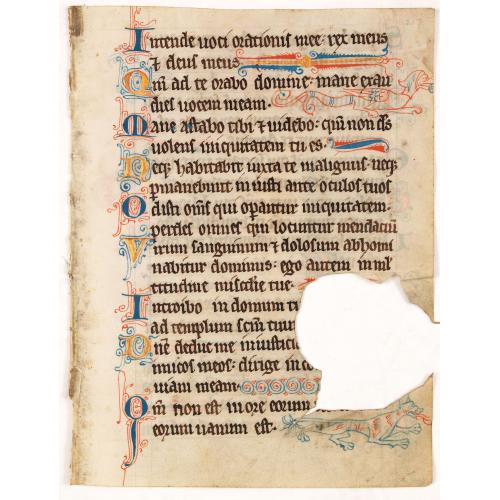 Intende uoci orationis mee: rex meus
⁊ deus meus
Qm̄ ad te orabo domine: mane exau
dies uocem meam.
Mane astabo tibi ⁊ uidebo: qm̄ non ds̄
uolens iniquitatem tu es.
Neqꝫ habitabit iuxta te malignus: neqꝫ
ꝑmanebunt iniusti ante oculos tuos
Odisti om̄s qui oꝑantur iniquitatem:
perdes omnes qui locuntur mendaciū
Virum sanguinum ⁊ dolosum abhomi
nabitur dominus: ego autem in ml̄
titudine misc̄die tue.
Introibo in domum
ad templum sc̄m tuum
Dn̄e deduc me in iusticia
imicos meos: dirige in
uiam meam.
Qm̄ non est in ore eorum
eorum uanum est.